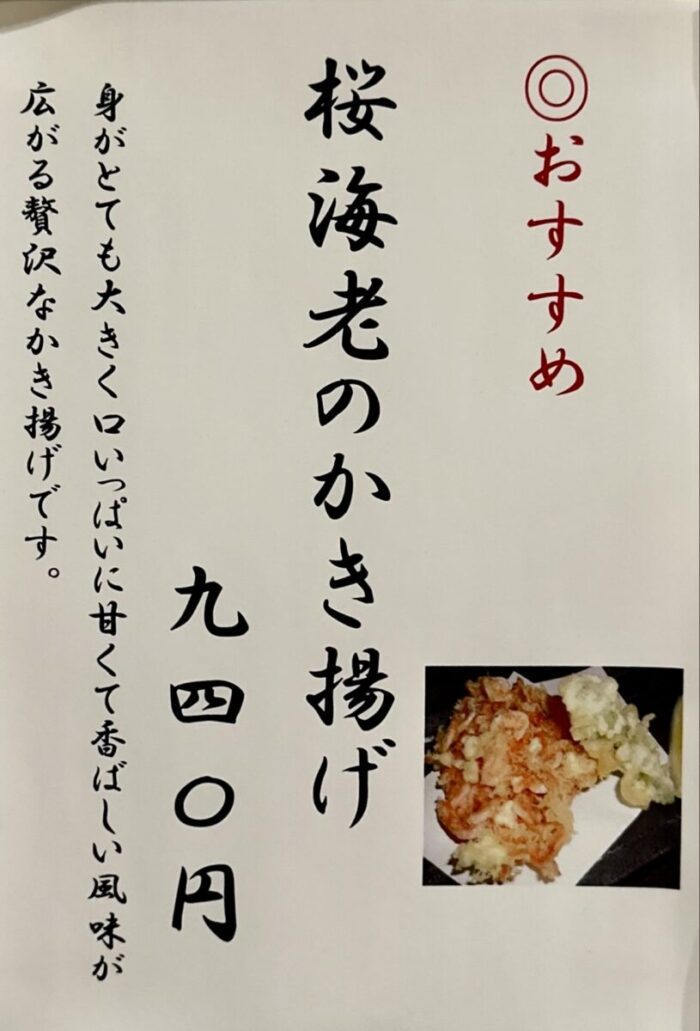 ◎おすすめ
桜海老のかき揚げ
九四〇円
身がとても大きく口いっぱいに甘くて香ばしい風味が
広がる贅沢なかき揚げです。